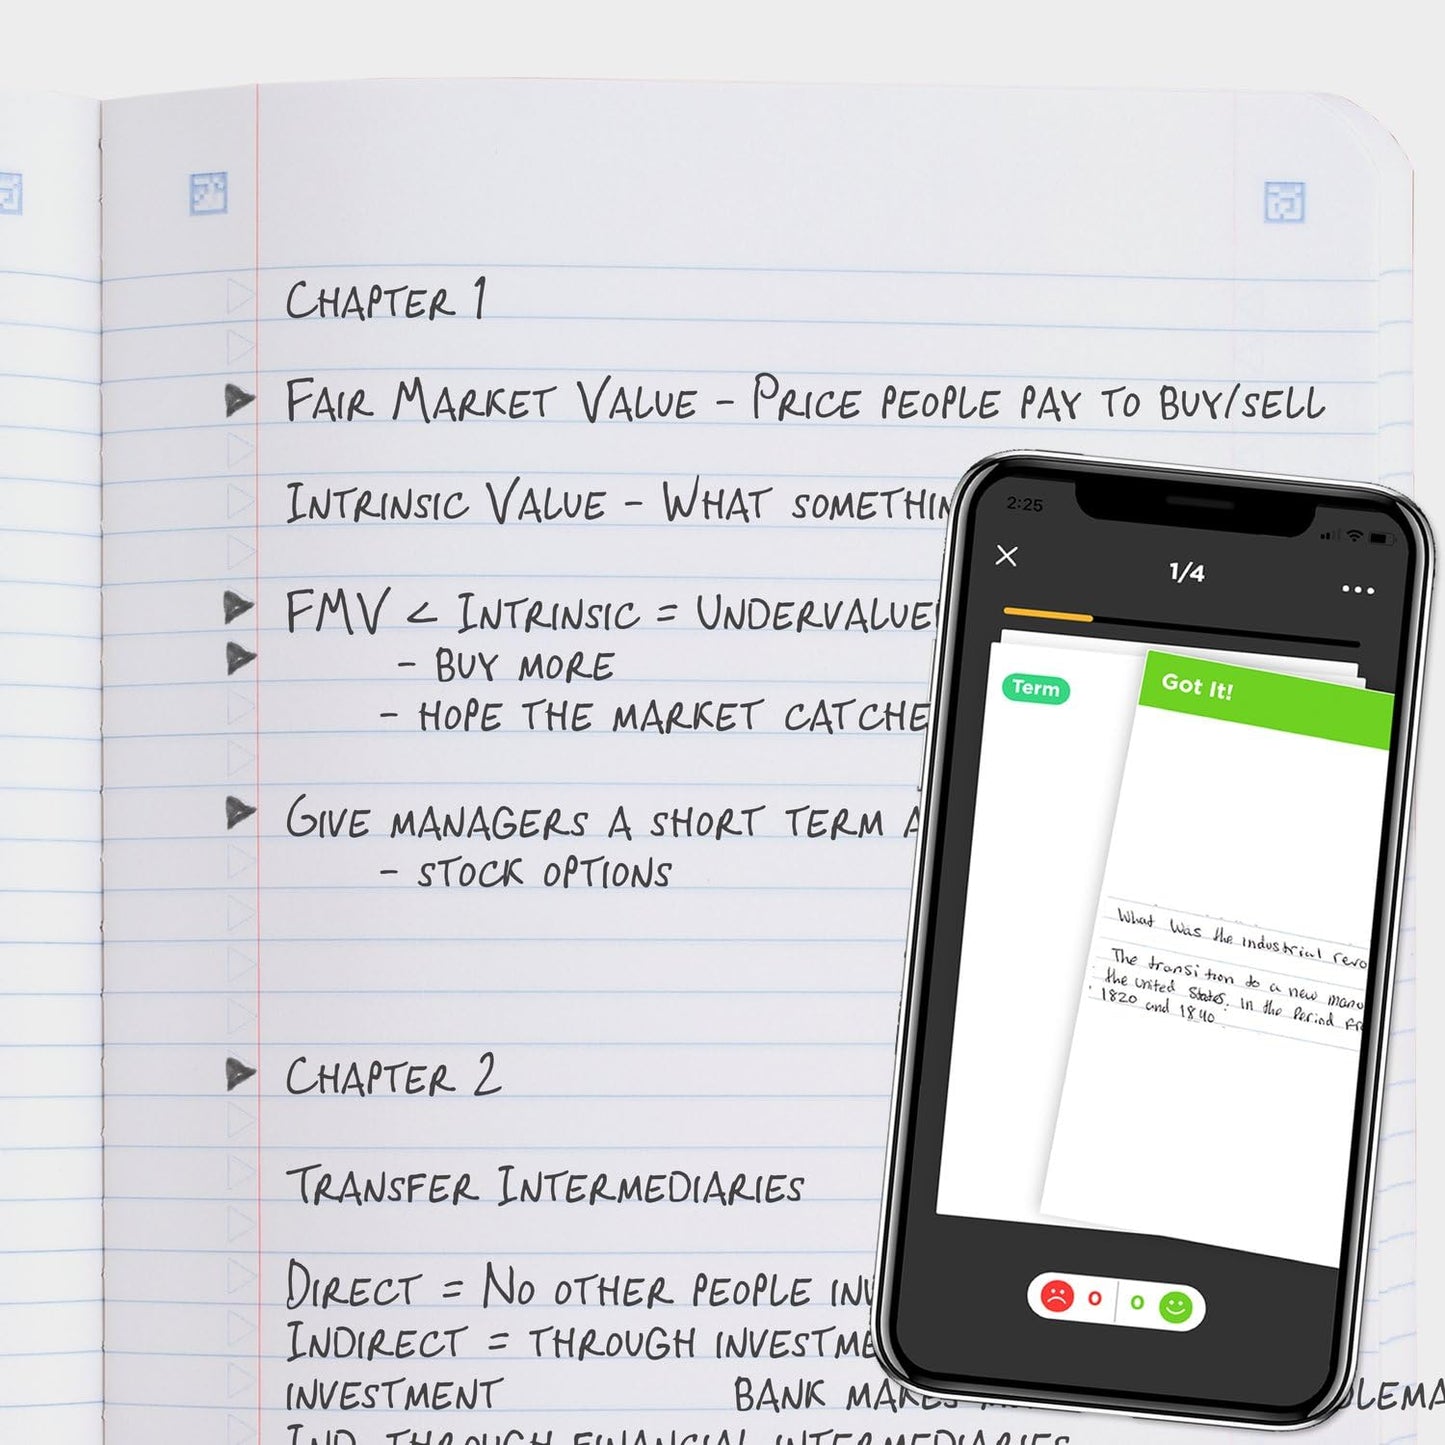 CHAPTER 1
FAIR MARKET VALUE - PRICE PEOPLE PAY TO BUY/SELL
INTRINSIC VALUE - WHAT
FMV < INTRINSIC =
- BUY MORE
- HOPE THE MARKET
GIVE MANAGERS A SHORT TERM
- STOCK OPTIONS
CHAPTER 2
TRANSFER INTERMEDIARIES
DIRECT = NO OTHER PEOPLE
INDIRECT = THROUGH
INVESTMENT BANK
IND. THROUGH FINANCIAL INTERMEDIARIES
2:25
1/4
Term
Got It!
What was the industrial
The transition to a new
the United States. In the Period
1820 and 1840
0 0